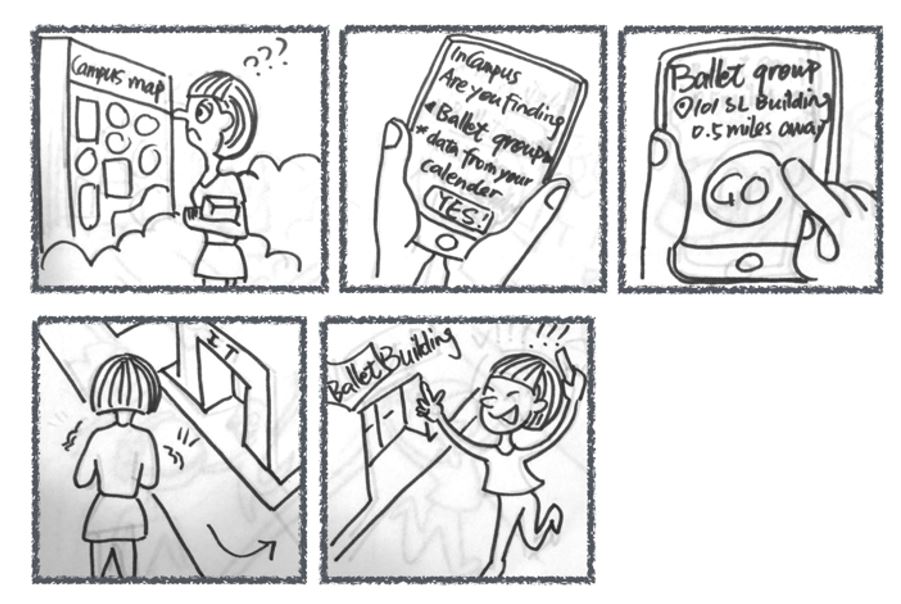 Campus map
???
InCampus
Are you finding
Ballet group
* data from your
calender
YES!
Ballet group
101 SL Building
0.5 miles away
GO
IT
Ballet Building
!!!